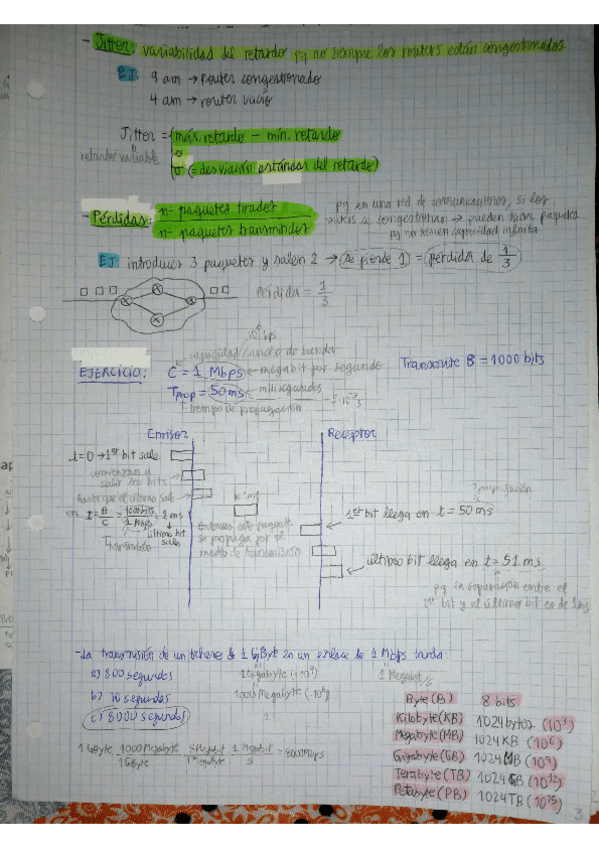 - Jitter: variabilidad del retardo pq no siempre los routers están congestionados
EJ: 9 am → router congestionado
4 am → router vacío
Jitter = máx. retardo - mín. retardo
retardo variable
o
σ (= desviación estándar del retardo)
- Pérdidas: nº paquetes tirados
nº paquetes transmitidos
pq en una red de comunicaciones, si los
routers se congestionan → pueden tirar paquetes
pq no tienen capacidad infinita
EJ: introduces 3 paquetes y salen 2 → se pierde 1 = pérdida de 1/3
Pérdida = 1/3
capacidad/ancho de banda
EJERCICIO: C = 1 Mbps ← megabit por segundo
Transmite B = 1000 bits
Tprop = 50 ms ← milisegundos
tiempo de propagación
Emisor
Receptor
t=0 → 1er bit sale
comienzan a
salir los bits
hasta que el último sale
t = B/C = 1000 bits/1 Mbps = 1 ms
último bit
sale
Transmisión
Entonces, este paquete
se propaga por el
medio de transmisión
1er bit llega en t = 50 ms
último bit llega en t = 51 ms
pq la separación entre el
1er bit y el último bit es de 1 ms
- La transmisión de un fichero de 1 GByte en un enlace de 1 Mbps tarda:
a) 800 segundos
1 Gigabyte (10⁹)
1 Megabit/s
b) 70 segundos
1000 Megabyte (10⁶)
c) 8000 segundos
1 GByte 1000 Megabyte/1 GByte 8 Megabit/1 Megabyte 1 Megabit/s = 8000 Mbps
Byte (B) 8 bits
Kilobyte (KB) 1024 bytes (10³)
Megabyte (MB) 1024 KB (10⁶)
Gigabyte (GB) 1024 MB (10⁹)
Terabyte (TB) 1024 GB (10¹²)
Petabyte (PB) 1024 TB (10¹⁵)
3